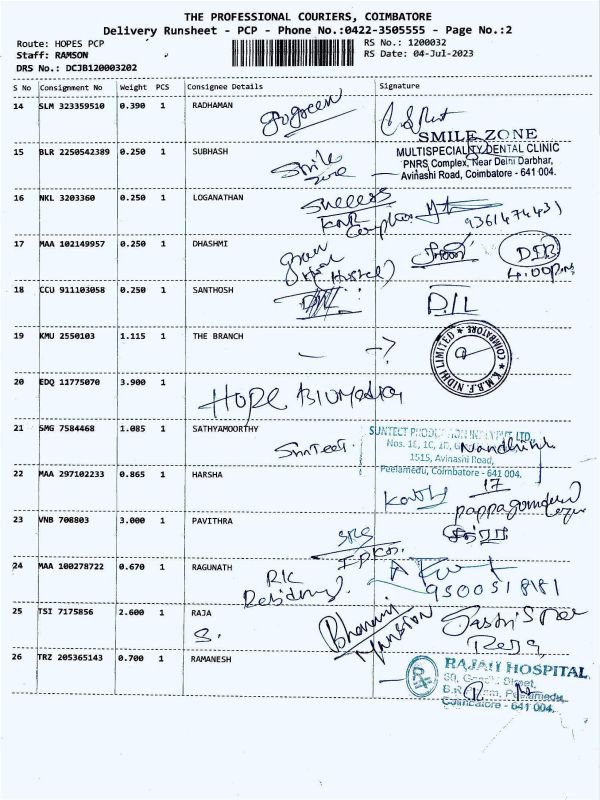 THE PROFESSIONAL COURIERS, COIMBATORE
Delivery Runsheet - PCP - Phone No.:0422-3505555 - Page No.:2
Route: HOPES PCP
RS No.: 1200032
Staff: RAMSON
RS Date: 04-Jul-2023
DRS No.: DCJB120003202
S No Consignment No Weight PCS Consignee Details Signature
14 SLM 323359510 0.390 1 RADHAMAN
SMILE ZONE
MULTISPECIALITY DENTAL CLINIC
PNRS Complex, Near Delhi Darbhar,
Avinashi Road, Coimbatore - 641 004.
15 BLR 2250542389 0.250 1 SUBHASH
Smile
Zone
16 NKL 3203360 0.250 1 LOGANATHAN
Success
9361474431
17 MAA 102149957 0.250 1 DHASHMI
(Hostel)
4.00pm
18 CCU 911103058 0.250 1 SANTHOSH
D/L
19 KMU 2550103 1.115 1 THE BRANCH
K.M.B.F. NIDHI LIMITED * COIMBATORE *
20 EDQ 11775070 3.900 1
HOPE BIOMEDICA
21 SMG 7584468 1.085 1 SATHYAMOORTHY
Suntect
SUNTECT
1515, Avinashi Road,
Peelamedu, Coimbatore - 641 004.
Nandhini
22 MAA 297102233 0.865 1 HARSHA
17
23 VNB 708803 3.000 1 PAVITHRA
SRS
24 MAA 100278722 0.670 1 RAGUNATH
RK
Residency
9500518181
25 TSI 7175856 2.600 1 RAJA
S.
Bhavani
Mansion
26 TRZ 205365143 0.700 1 RAMANESH
RAJAH HOSPITAL
Coimbatore - 641 004.